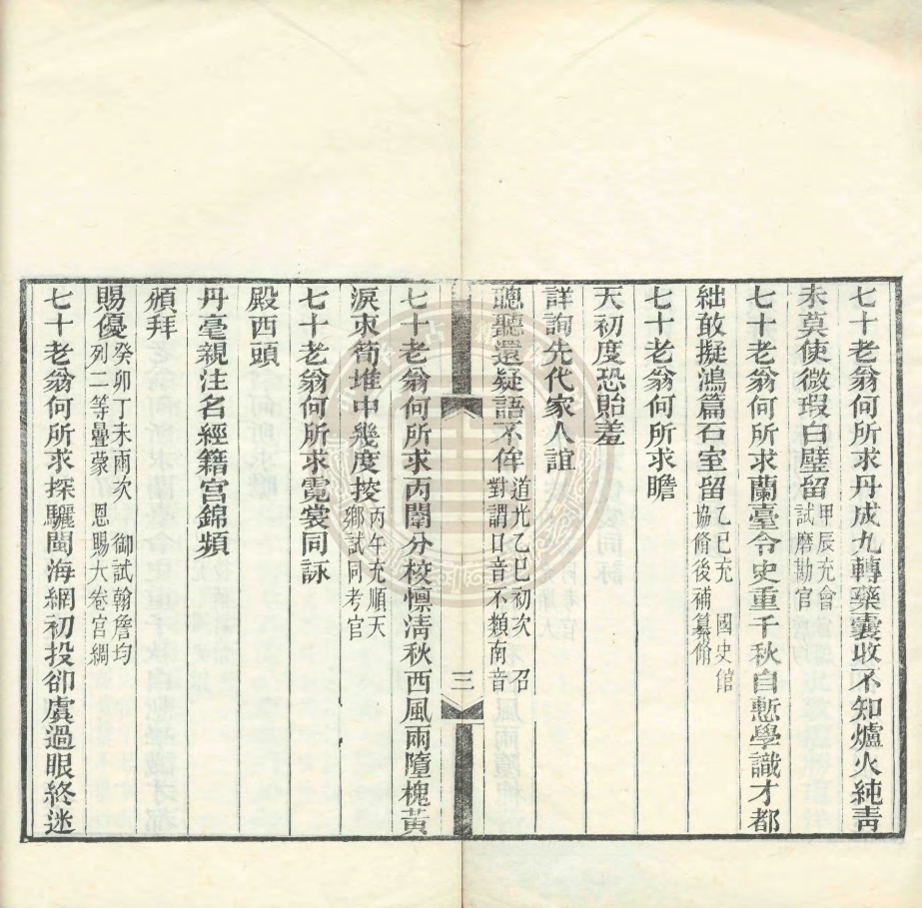 七十老翁何所求丹成九轉藥囊收不知爐火純青
未莫使微瑕白璧留甲辰充會試磨勘官
七十老翁何所求蘭臺令史重千秋自慙學識才都
絀敢擬鴻篇石室留乙巳充 國史館協脩後補纂脩
七十老翁何所求瞻
天初度恐貽羞
詳詢先代家人誼
聰聽還疑語不侔道光乙巳初次 召對謂口音不類南音
三
七十老翁何所求丙闈分校懍清秋西風雨墮槐黃
淚束筍堆中幾度搜丙午充順天鄉試同考官
七十老翁何所求霓裳同詠
殿西頭
丹毫親注名經籍宮錦頻
頒拜
賜優癸卯丁未兩次 御試翰詹均列二等疊蒙 恩賜大卷宮綢
七十老翁何所求探驪閩海網初投卻虞過眼終迷